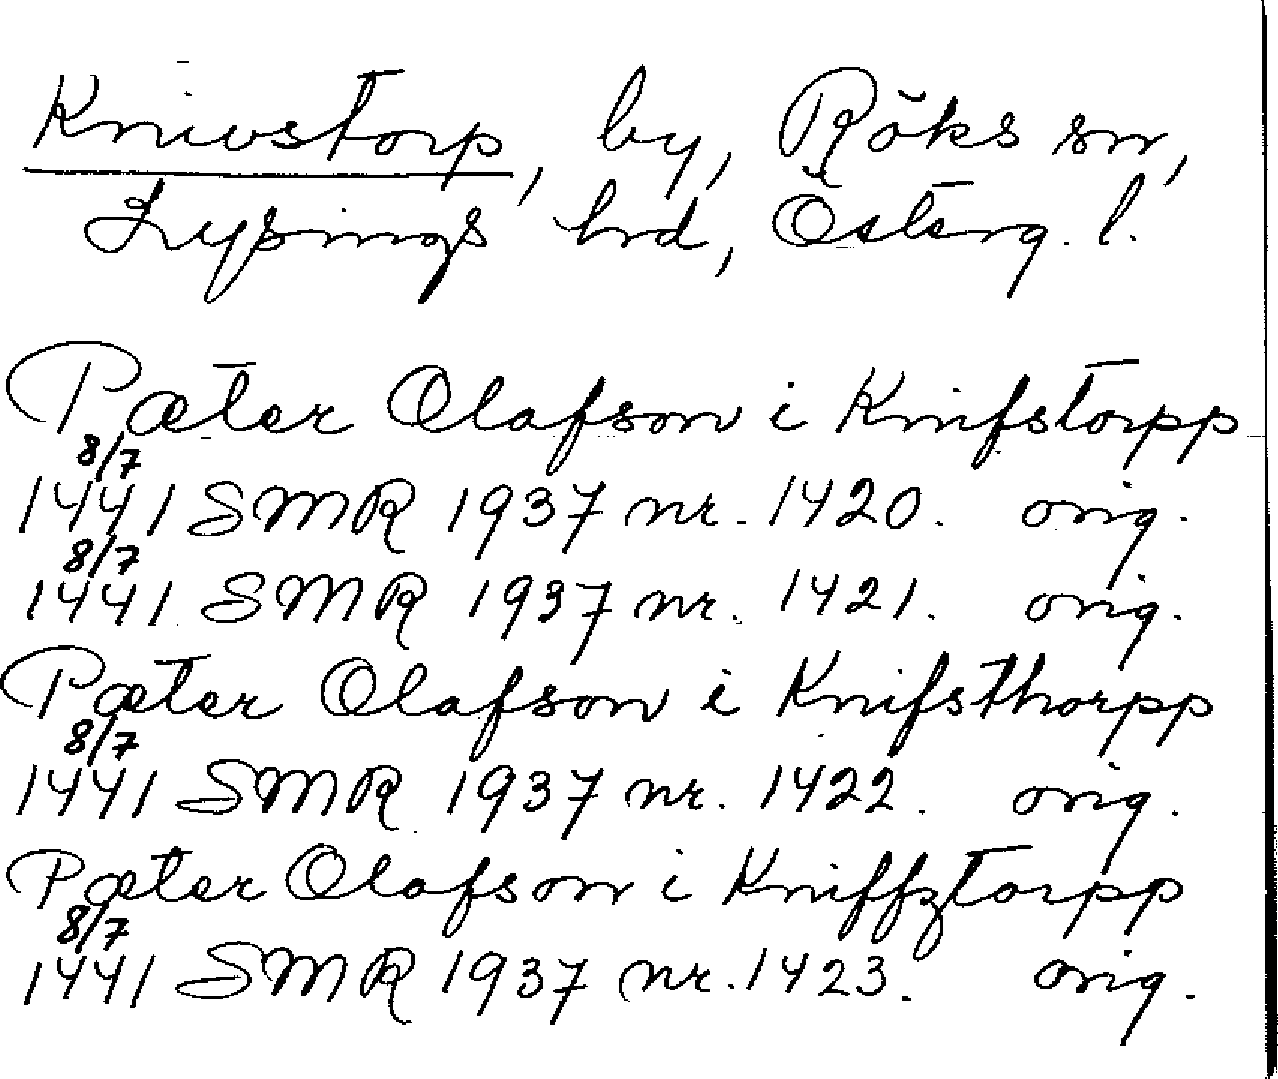 Knivstorp, by, Röks sn,
Lysings hrd, Österg. l.
Pæter Olafson i Knifstorpp
8/7
1441 SMR 1937 nr. 1420. orig.
8/7
1441 SMR 1937 nr. 1421. orig.
Pæter Olafson i Knifsthorpp
8/7
1441 SMR 1937 nr. 1422. orig.
Pæter Olafson i Kniffztorpp
8/7
1441 SMR 1937 nr. 1423. orig.